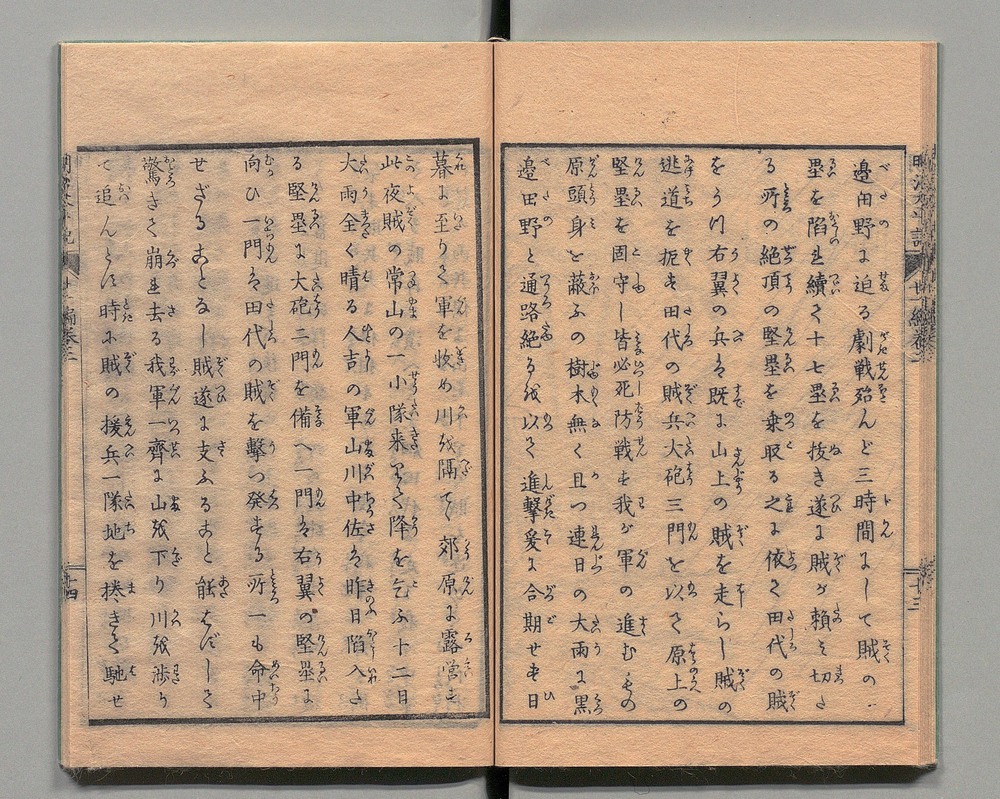 邉田野に迫る劇戦殆んど三時間にして賊の
塁を陥れ続く十七塁を抜き遂に賊が頼み切た
る所の絶頂の堅塁を乗取る之に依て田代の賊
をうつ右翼の兵は既に山上の賊を走らし賊の
逃道を扼す田代の賊兵大砲三門を以て原上の
堅塁を固守し皆必死防戦す我が軍の進むもの
原頭身を蔽ふの樹木無く且つ連日の大雨に黒
邉田野と通路絶るを以て進撃爰に合期せず日
暮に至りて軍を收め川を隔て郊原に露営す
此夜賊の常山の一小隊来りて降を乞ふ十二日
大雨全く晴る人吉の軍山川中佐は昨日陥入た
る堅塁に大砲二門を備へ一門は右翼の堅塁に
向ひ一門は田代の賊を撃つ発する所一も命中
せざることなし賊遂に支ふること能はずして
驚き崩れ去る我軍一齊に山を下り川を渉り
て追んとす時に賊の援兵一隊地を捲きて馳せ
十三
十四